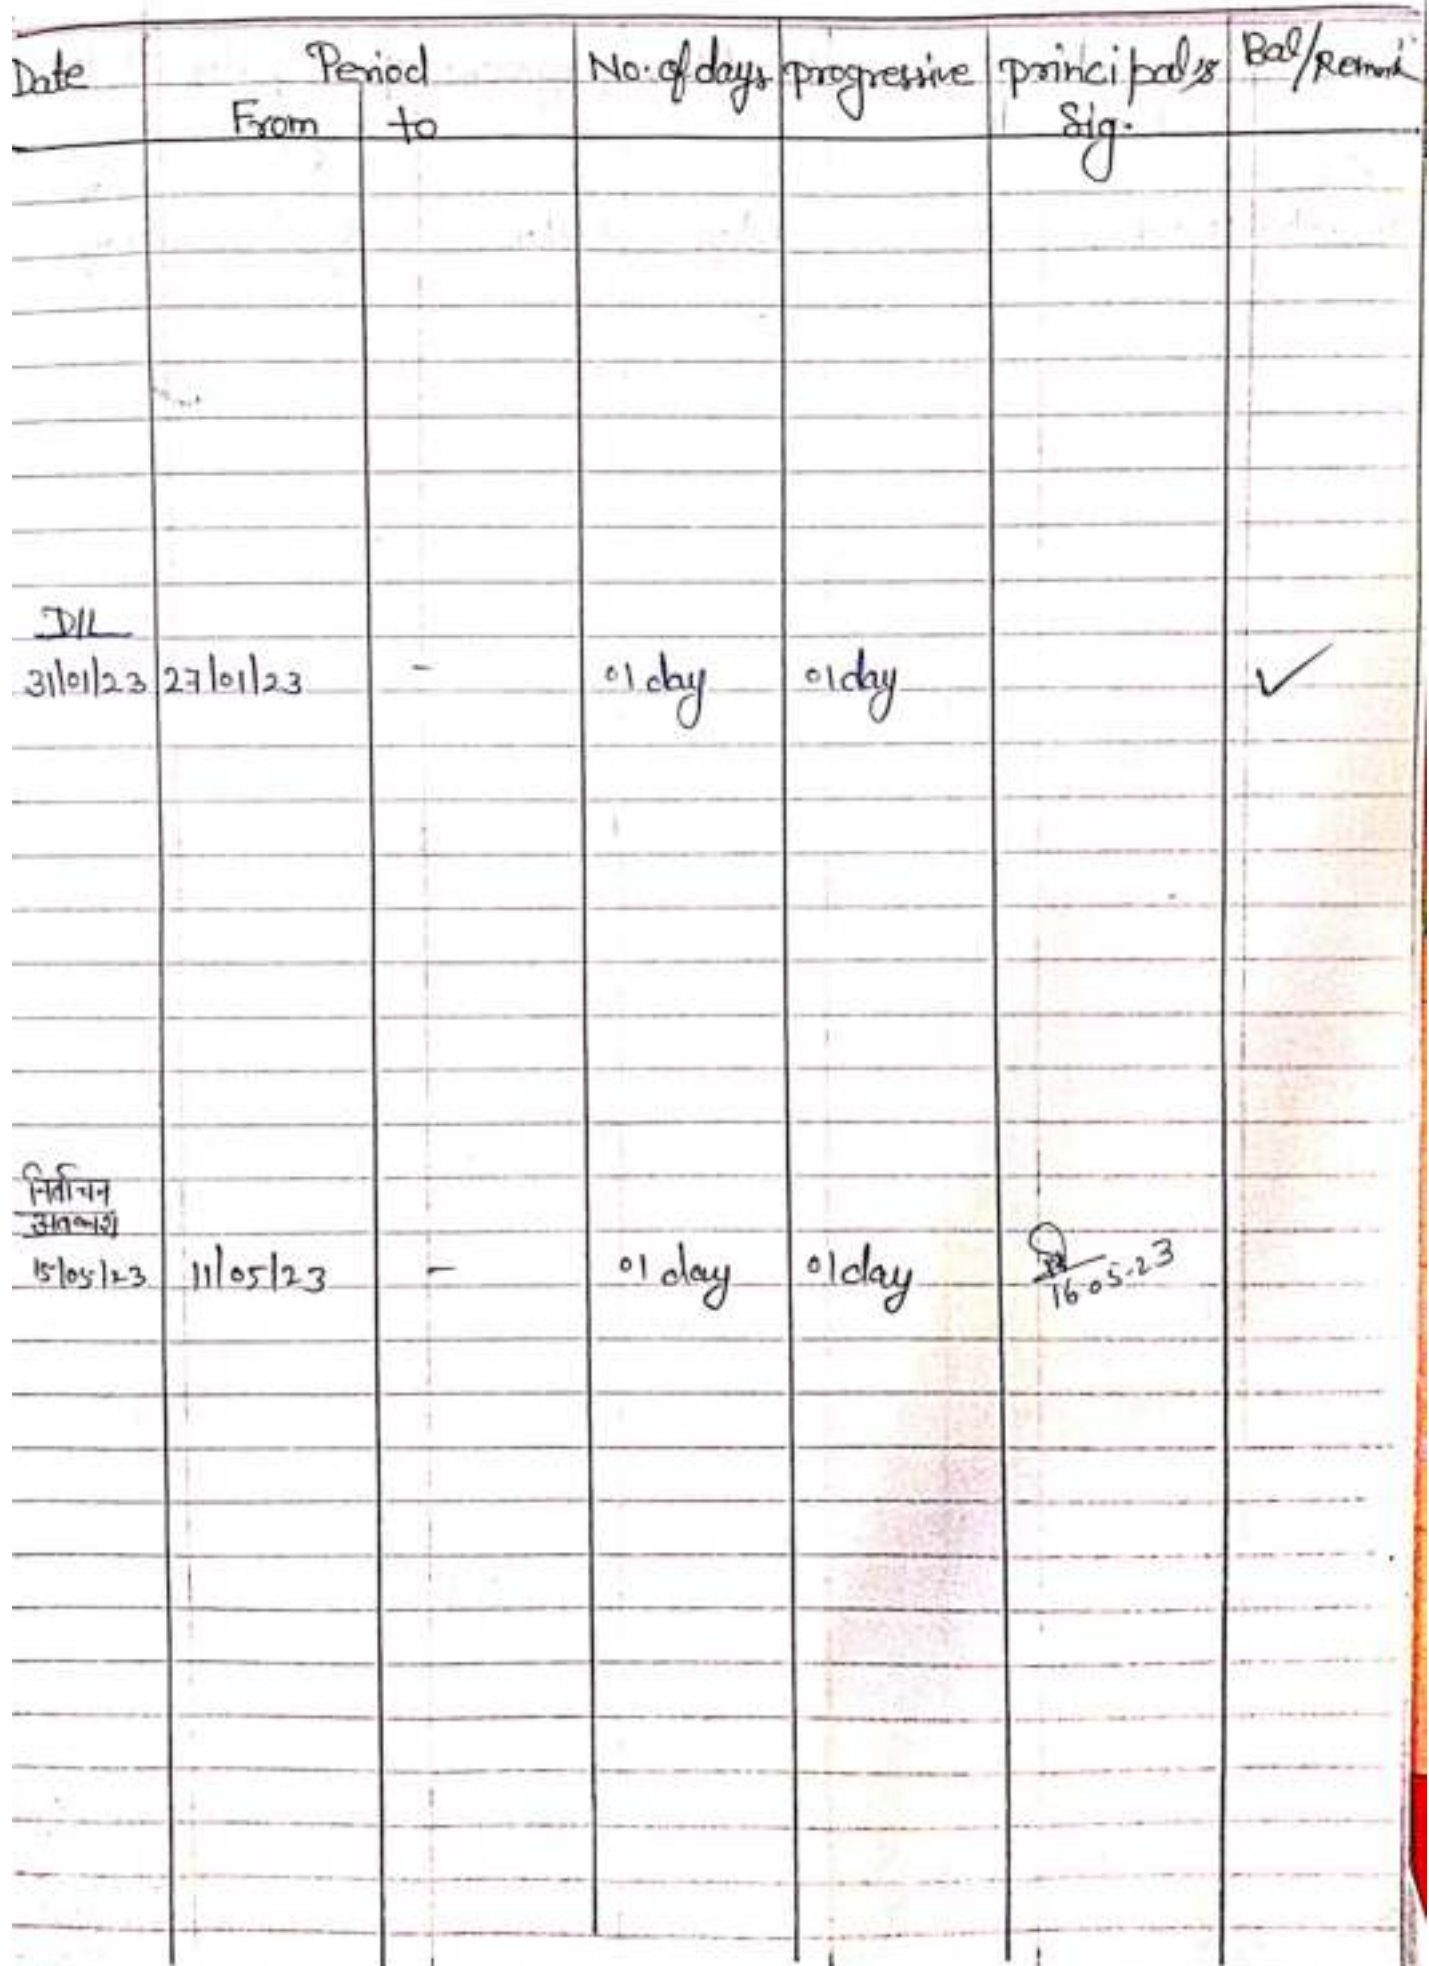 Date Period No. of days progressive principal's Bal/Remark
From to Sig.
D/L
31/01/23 27/01/23 - 01 day 01 day ✓
निर्वाचन
अवकाश
15/05/23 11/05/23 - 01 day 01 day
16-05-23